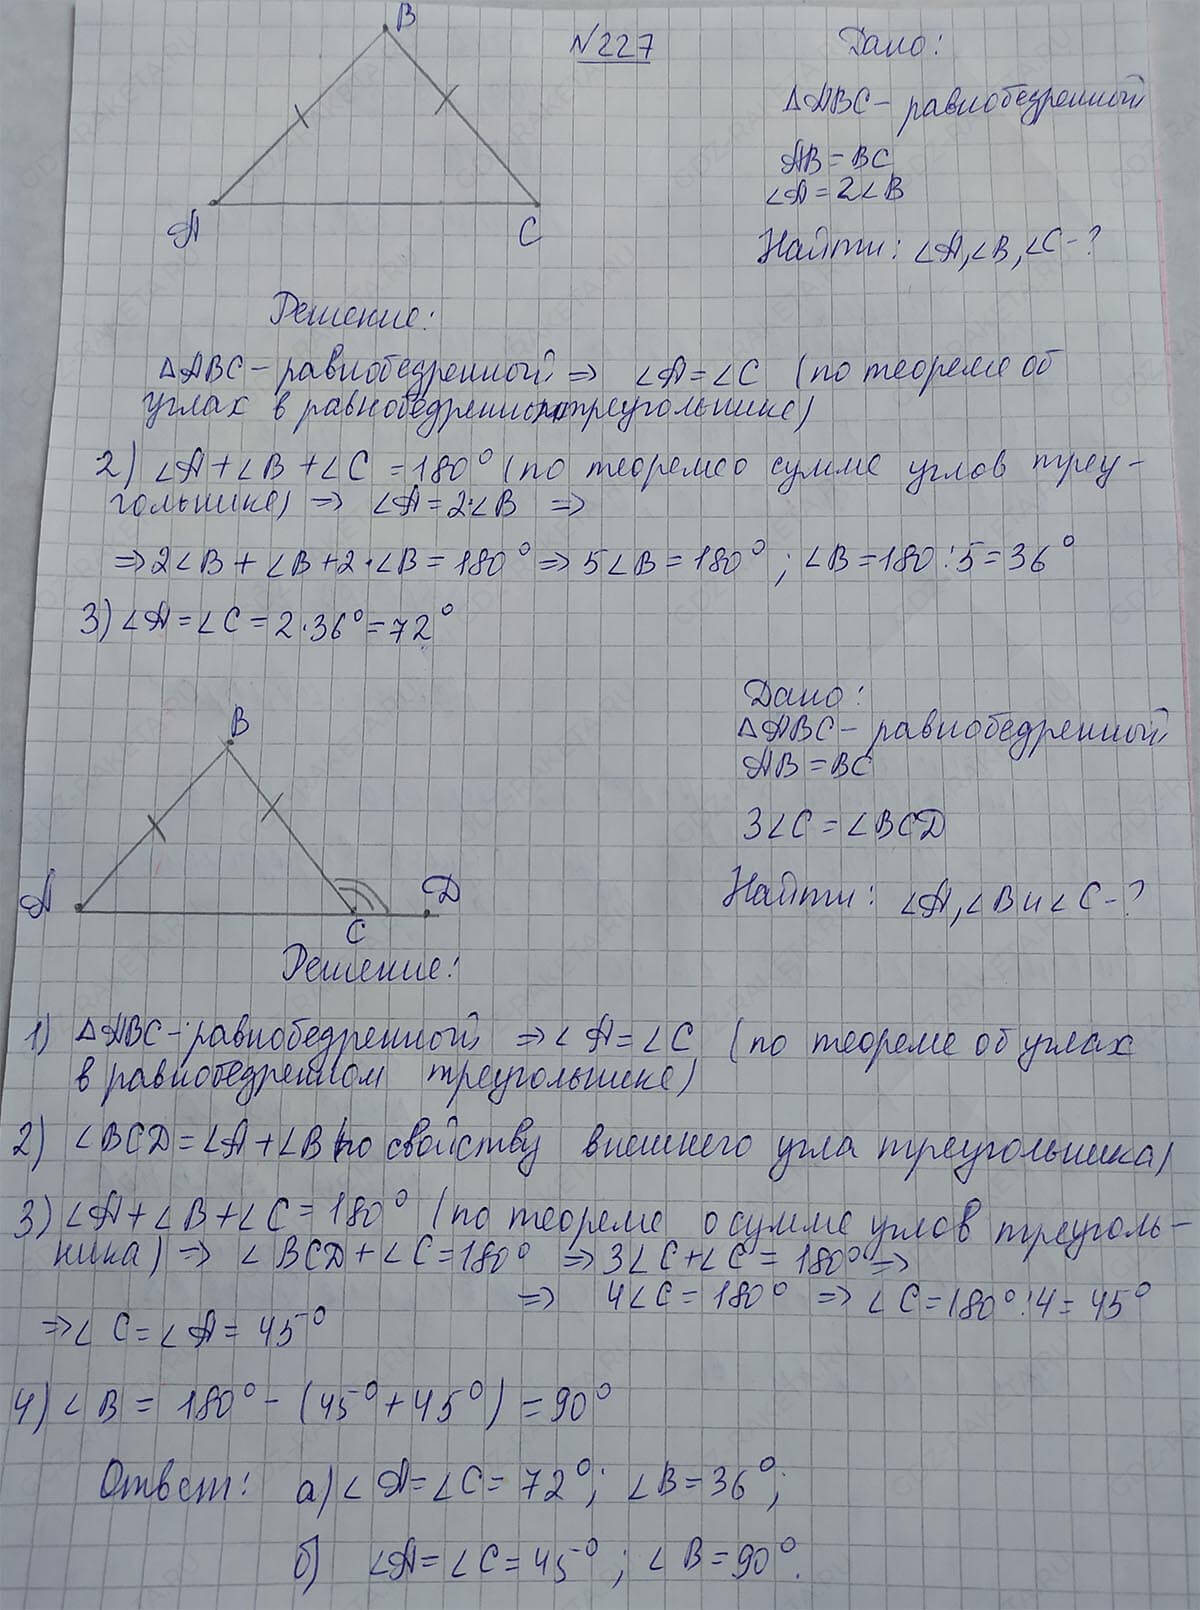 B
N227
Дано:
△ABC - равнобедренный
AB = BC
∠A = 2∠B
A
C
Найти: ∠A, ∠B, ∠C - ?
Решение:
△ABC - равнобедренный ⇒ ∠A = ∠C (по теореме об
углах в равнобедренном треугольнике)
2) ∠A + ∠B + ∠C = 180° (по теореме о сумме углов треу-
гольнике) ⇒ ∠A = 2·∠B ⇒
⇒ 2∠B + ∠B + 2·∠B = 180° ⇒ 5∠B = 180°; ∠B = 180:5 = 36°
3) ∠A = ∠C = 2·36° = 72°
B
Дано:
△ABC - равнобедренный
AB = BC
3∠C = ∠BCD
A
C
D
Найти: ∠A, ∠B и ∠C - ?
Решение:
1) △ABC - равнобедренный ⇒ ∠A = ∠C (по теореме об углах
в равнобедренном треугольнике)
2) ∠BCD = ∠A + ∠B (по свойству внешнего угла треугольника)
3) ∠A + ∠B + ∠C = 180° (по теореме о сумме углов треуголь-
ника) ⇒ ∠BCD + ∠C = 180° ⇒ 3∠C + ∠C = 180° ⇒
⇒ 4∠C = 180° ⇒ ∠C = 180°:4 = 45°
⇒ ∠C = ∠A = 45°
4) ∠B = 180° - (45° + 45°) = 90°
Ответ: а) ∠A = ∠C = 72°; ∠B = 36°;
б) ∠A = ∠C = 45°; ∠B = 90°.